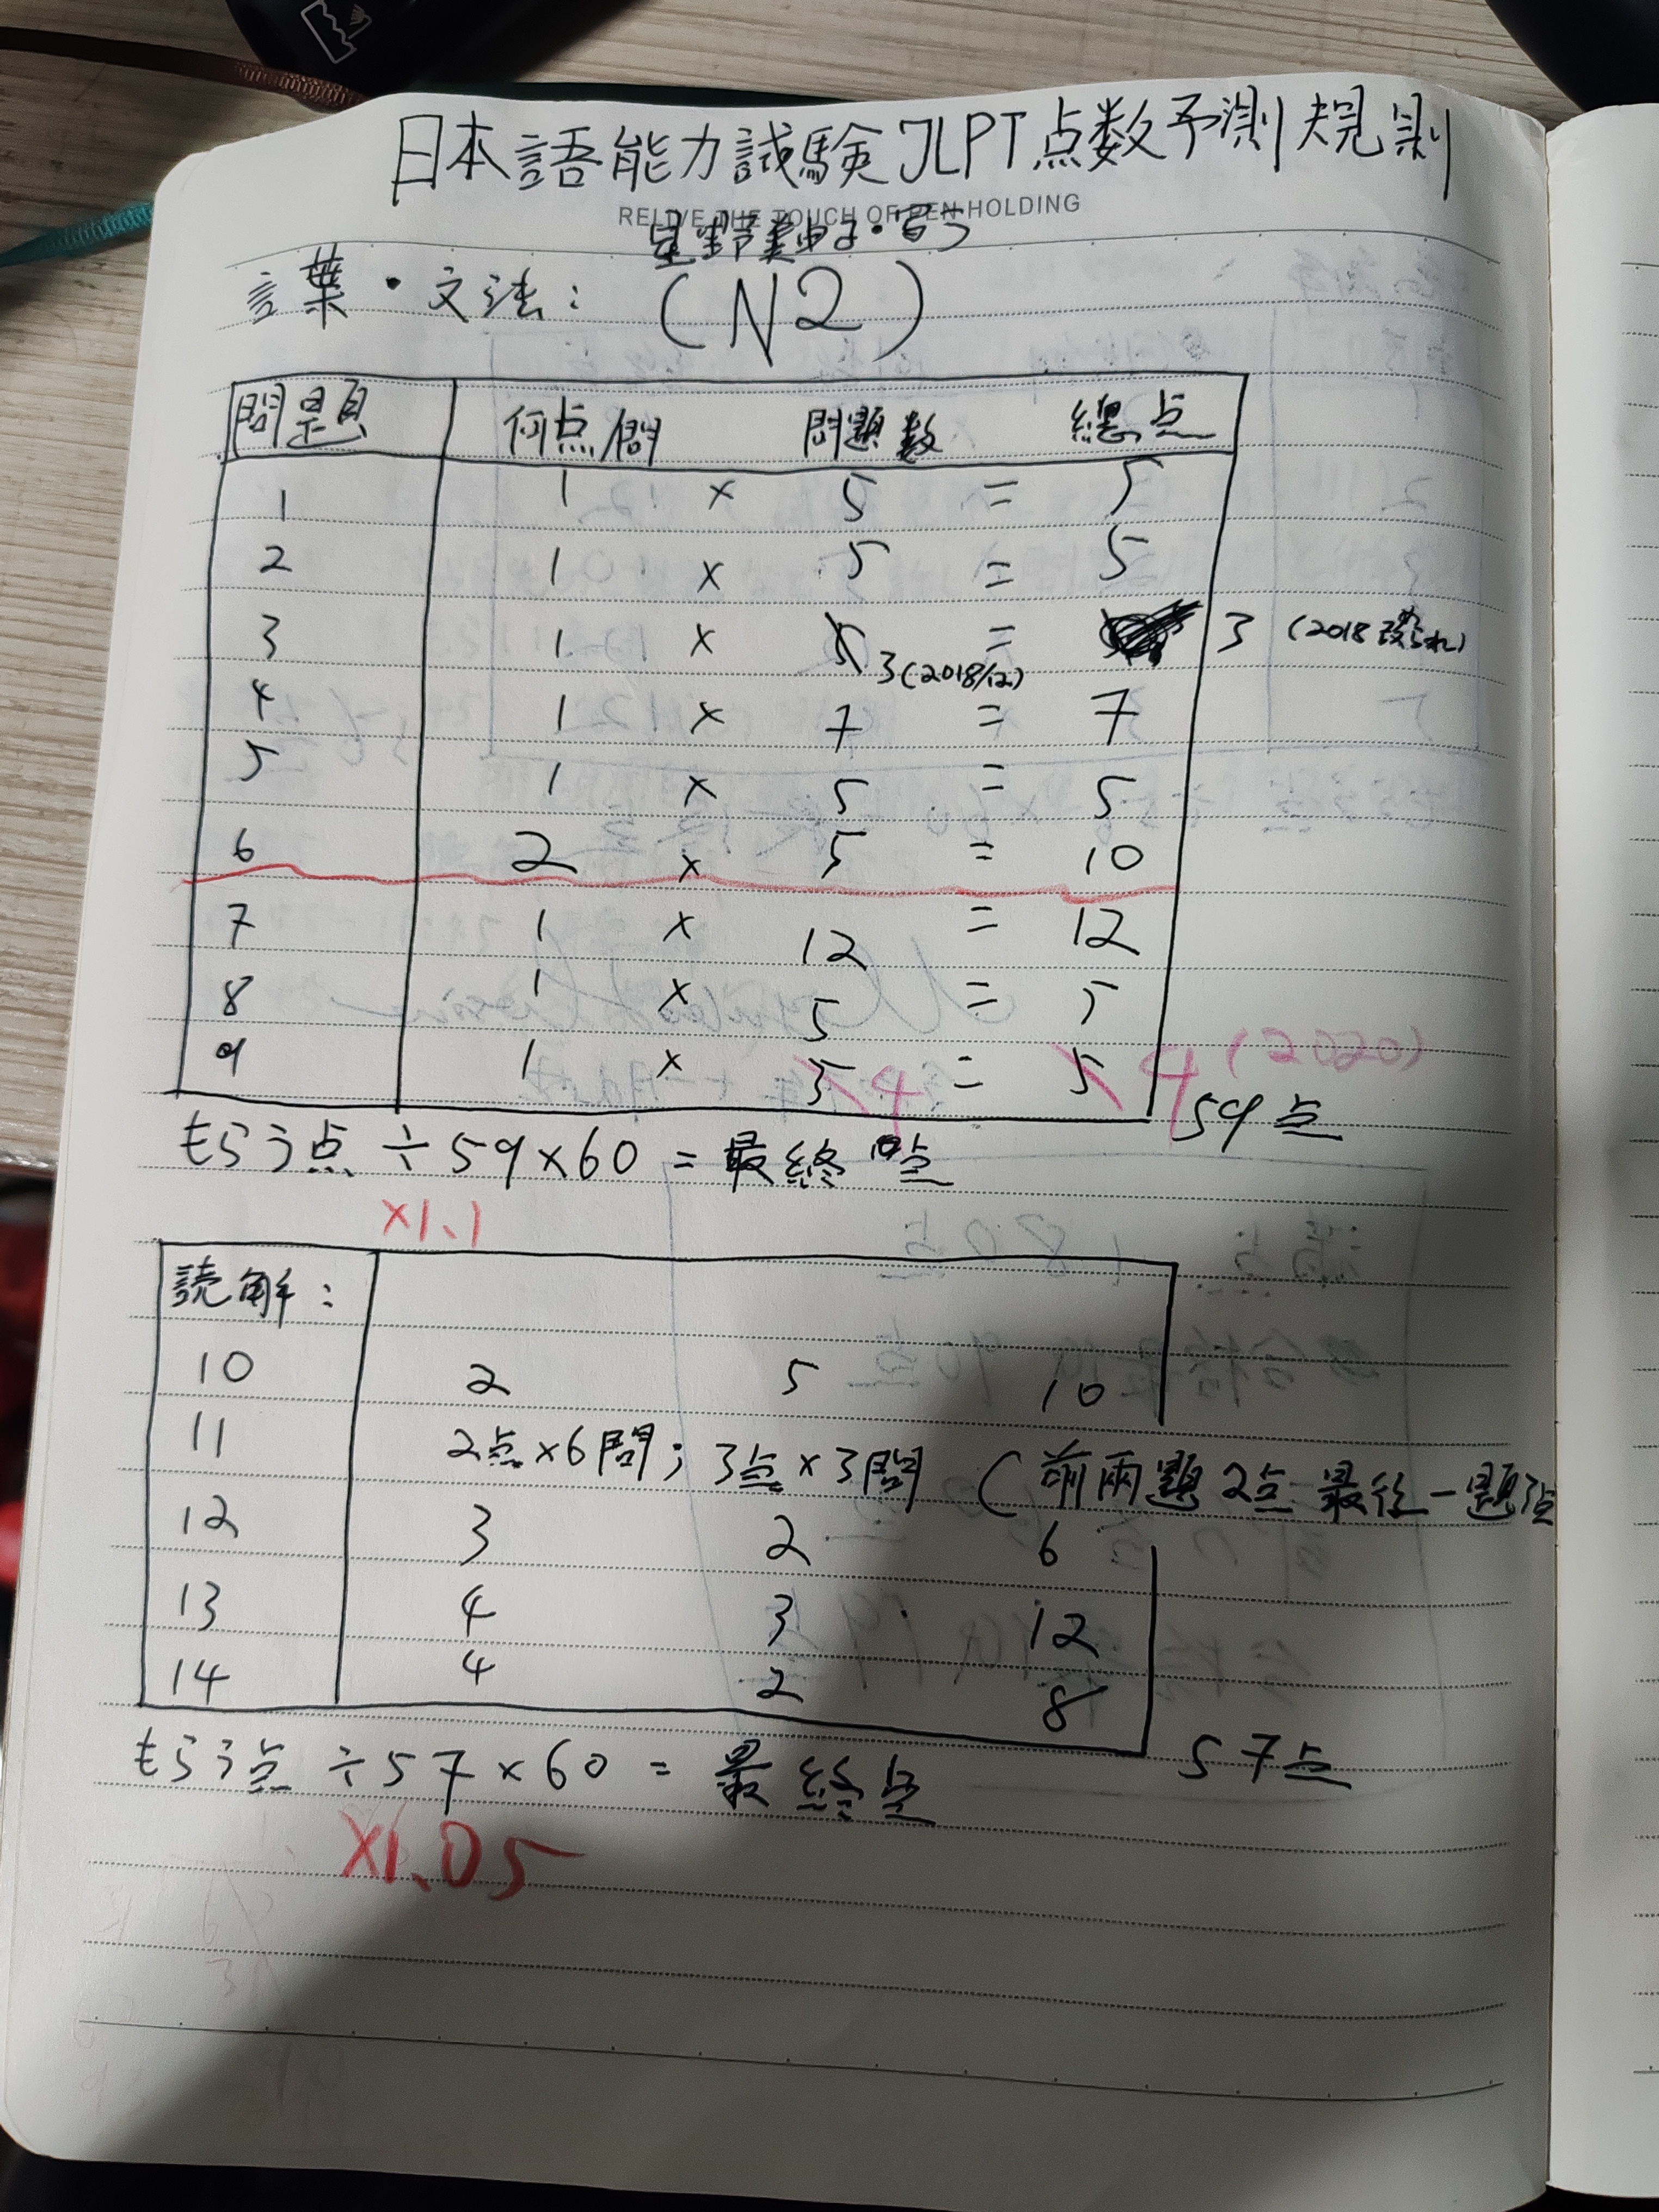 日本語能力試験JLPT点数予測規則
RELIVE THE TOUCH OF PEN HOLDING
言葉・文法：(N2)
問題 何点/問 問題数 総点
1 1 × 5 = 5
2 1 × 5 = 5
3 1 × 5 3(2018/12) = 3 (2018改られ)
4 1 × 7 = 7
5 1 × 5 = 5
6 2 × 5 = 10
7 1 × 12 = 12
8 1 × 5 = 5
9 1 × 5 4 = 5 4 (2020)
59点
もらう点 ÷59×60 = 最終点
×1.1
読解：
10 2 5 10
11 2点×6問；3点×3問 (前兩題2点 最後一題3点
12 3 2 6
13 4 3 12
14 4 2 8
57点
もらう点 ÷57×60 = 最終点
×1.05